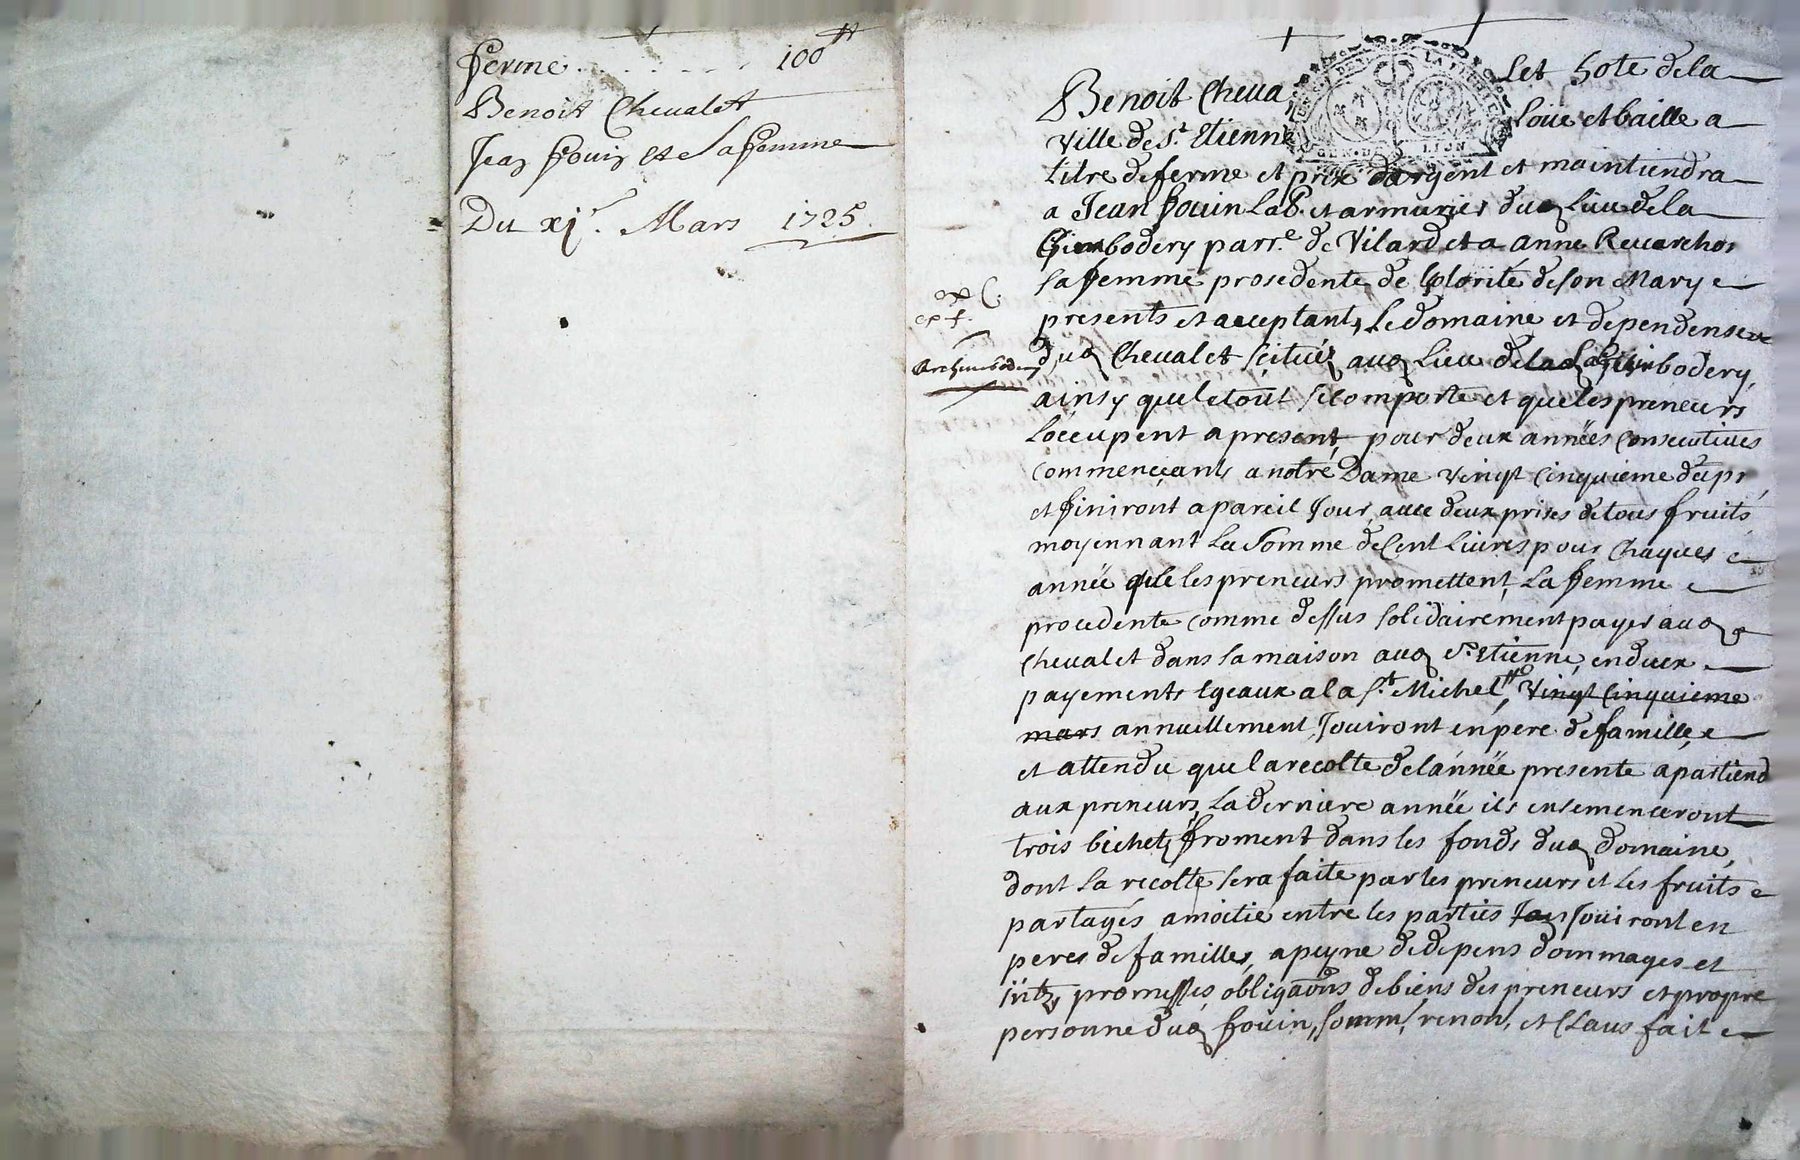 ferme . . . . . . . 100 ₶
Benoit Chevalet
Jean fouin et Sa femme
Du xj.e Mars 1725.
Benoit Cheva let hote dela
Ville de St. Etienne loue et baille a
titre de ferme et prix dargent et maintiendra
a Jean fouin Lab.r et armurier duq Lieu dela
bodery parr.e de Vilard et a anne
sa femme prosedente de Lotorité de son Mary
presents et acceptants, Le domaine et dependense
duq Chevalet scitué auq Lieu dela bodery,
ainsy que le tout se comporte et que les preneurs
loccupent a present, pour deux années consecutives
commençants a notre Dame Vingt Cinquieme du pr
et finiront a pareil Jour, avec deux prises de tous fruits
moyennant La Somme de Cent Livres pour Chaques
année que les preneurs promettent, La femme
procedente comme dessus solidairement payer auq
Chevalet dans sa maison auq St. Etienne, en deux
payements Egeaux a la St. Michel, Vingt Cinquieme
mars annuellement, Jouiront en pere de famille,
et attendu que la recolte de lannée presente apartiend
aux preneurs, La derniere année ils ensemenceront
trois bichets froment dans les fonds duq domaine,
dont La recolte sera faite par les preneurs et Les fruits
partagés a moitie entre les parties Jouiront en
peres de familles, a peyne de depens dommages et
intz, promesses, obligaons de biens des preneurs et propre
personne duq fouin, Soumm, renon, et Claus fait